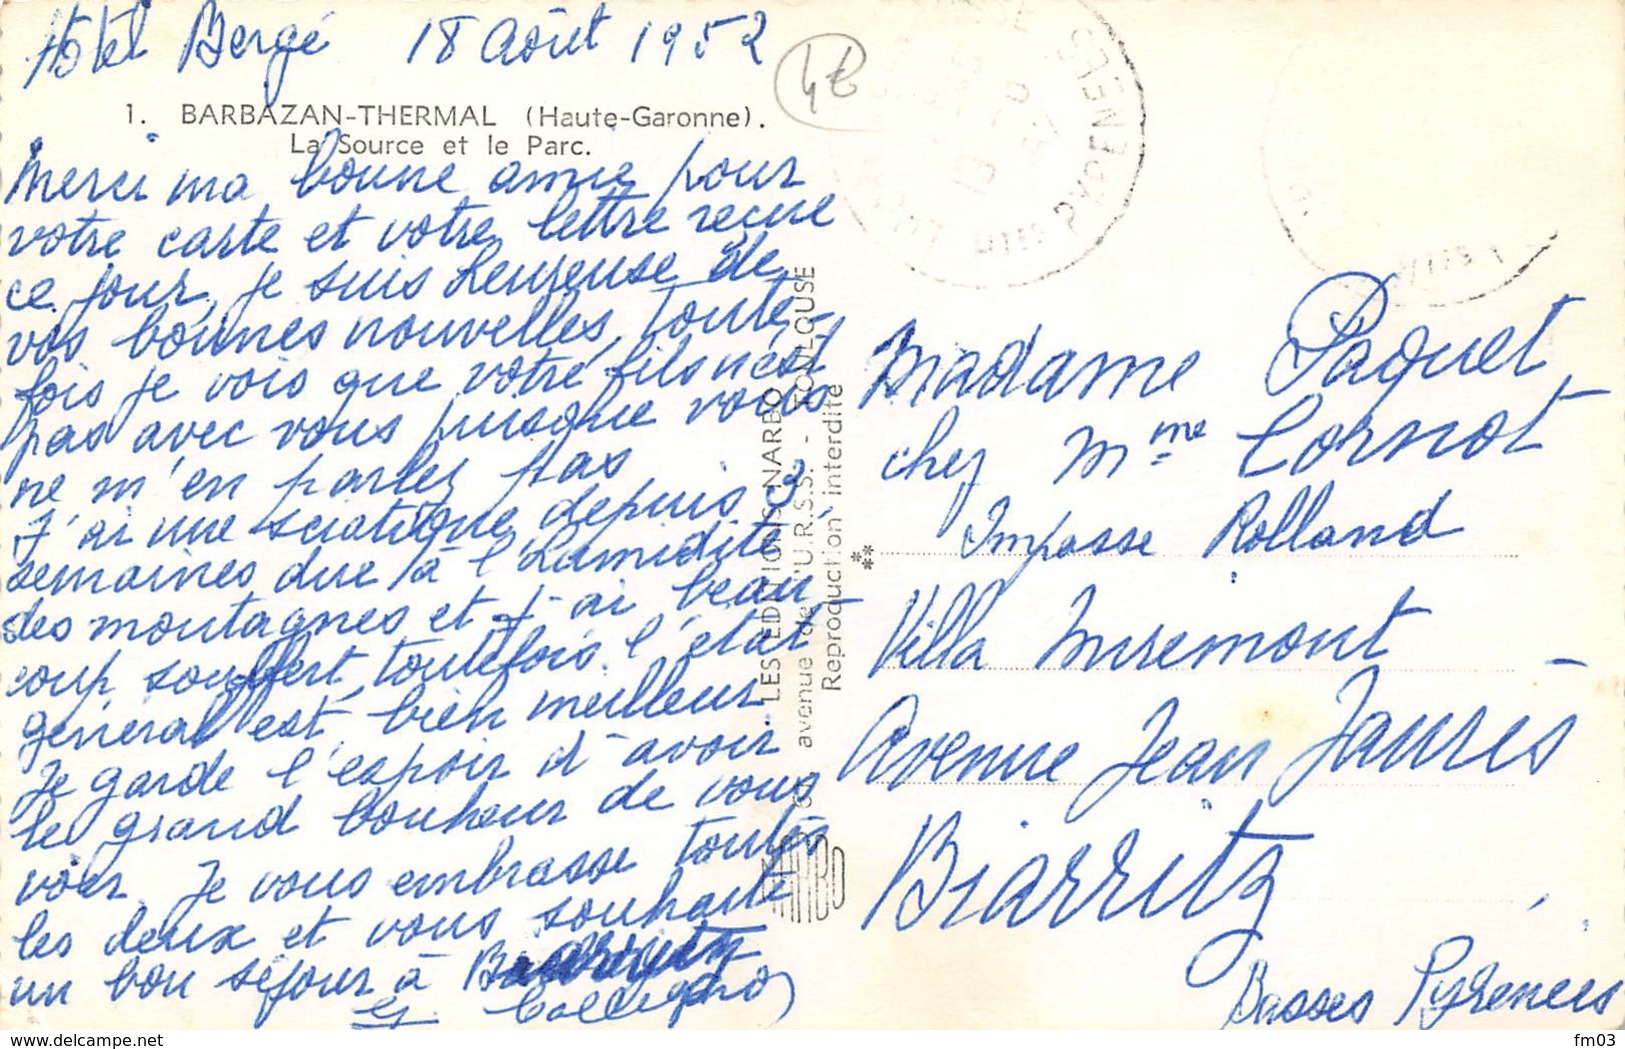 Hôtel Bergé 18 Août 1952
4€
1. BARBAZAN-THERMAL (Haute-Garonne).
La Source et le Parc.
Merci ma bonne amie pour
votre carte et votre lettre reçue
ce jour, je suis heureuse de
vos bonnes nouvelles, toute-
fois je vois que votre fils n'est
pas avec vous puisque vous
ne m'en parlez pas
J'ai une sciatique depuis 3
semaines due à l'humidité
des montagnes et j'ai beau
coup souffert, toutefois l'état
général est bien meilleur
Je garde l'espoir d'avoir
le grand bonheur de vous
voir. Je vous embrasse toutes
les deux et vous souhaite
un bon séjour à Biarritz
LES EDITIONS NARBO
avenue de l'U.R.S.S. - TOULOUSE
Reproduction interdite
NARBO
PYRENEES
Madame Paquet
chez Mme Cornot
Impasse Rolland
Villa Miremont
Avenue Jean Jaurès
Biarritz
Basses Pyrénées
www.delcampe.net
fm03